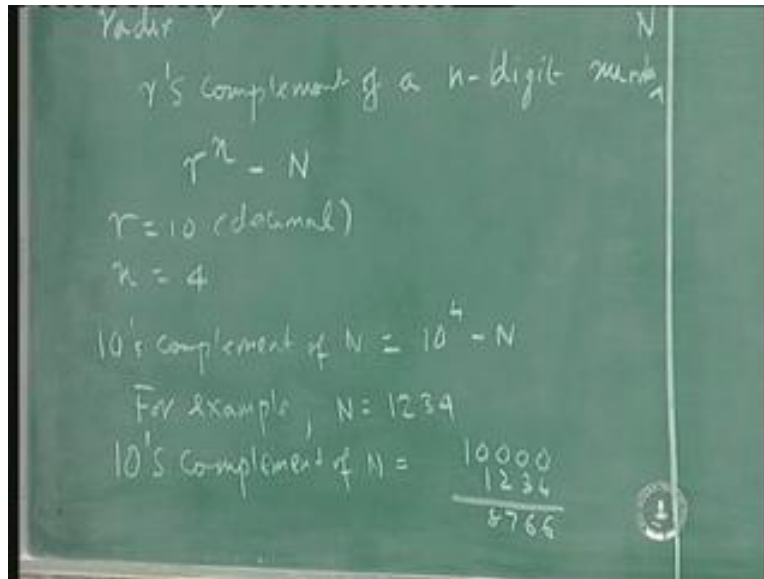 Radix r N
r's complement of a n-digit number
r^n - N
r = 10 (decimal)
n = 4
10's complement of N = 10^4 - N
For example, N = 1234
10's complement of N = 10000
1234
8766